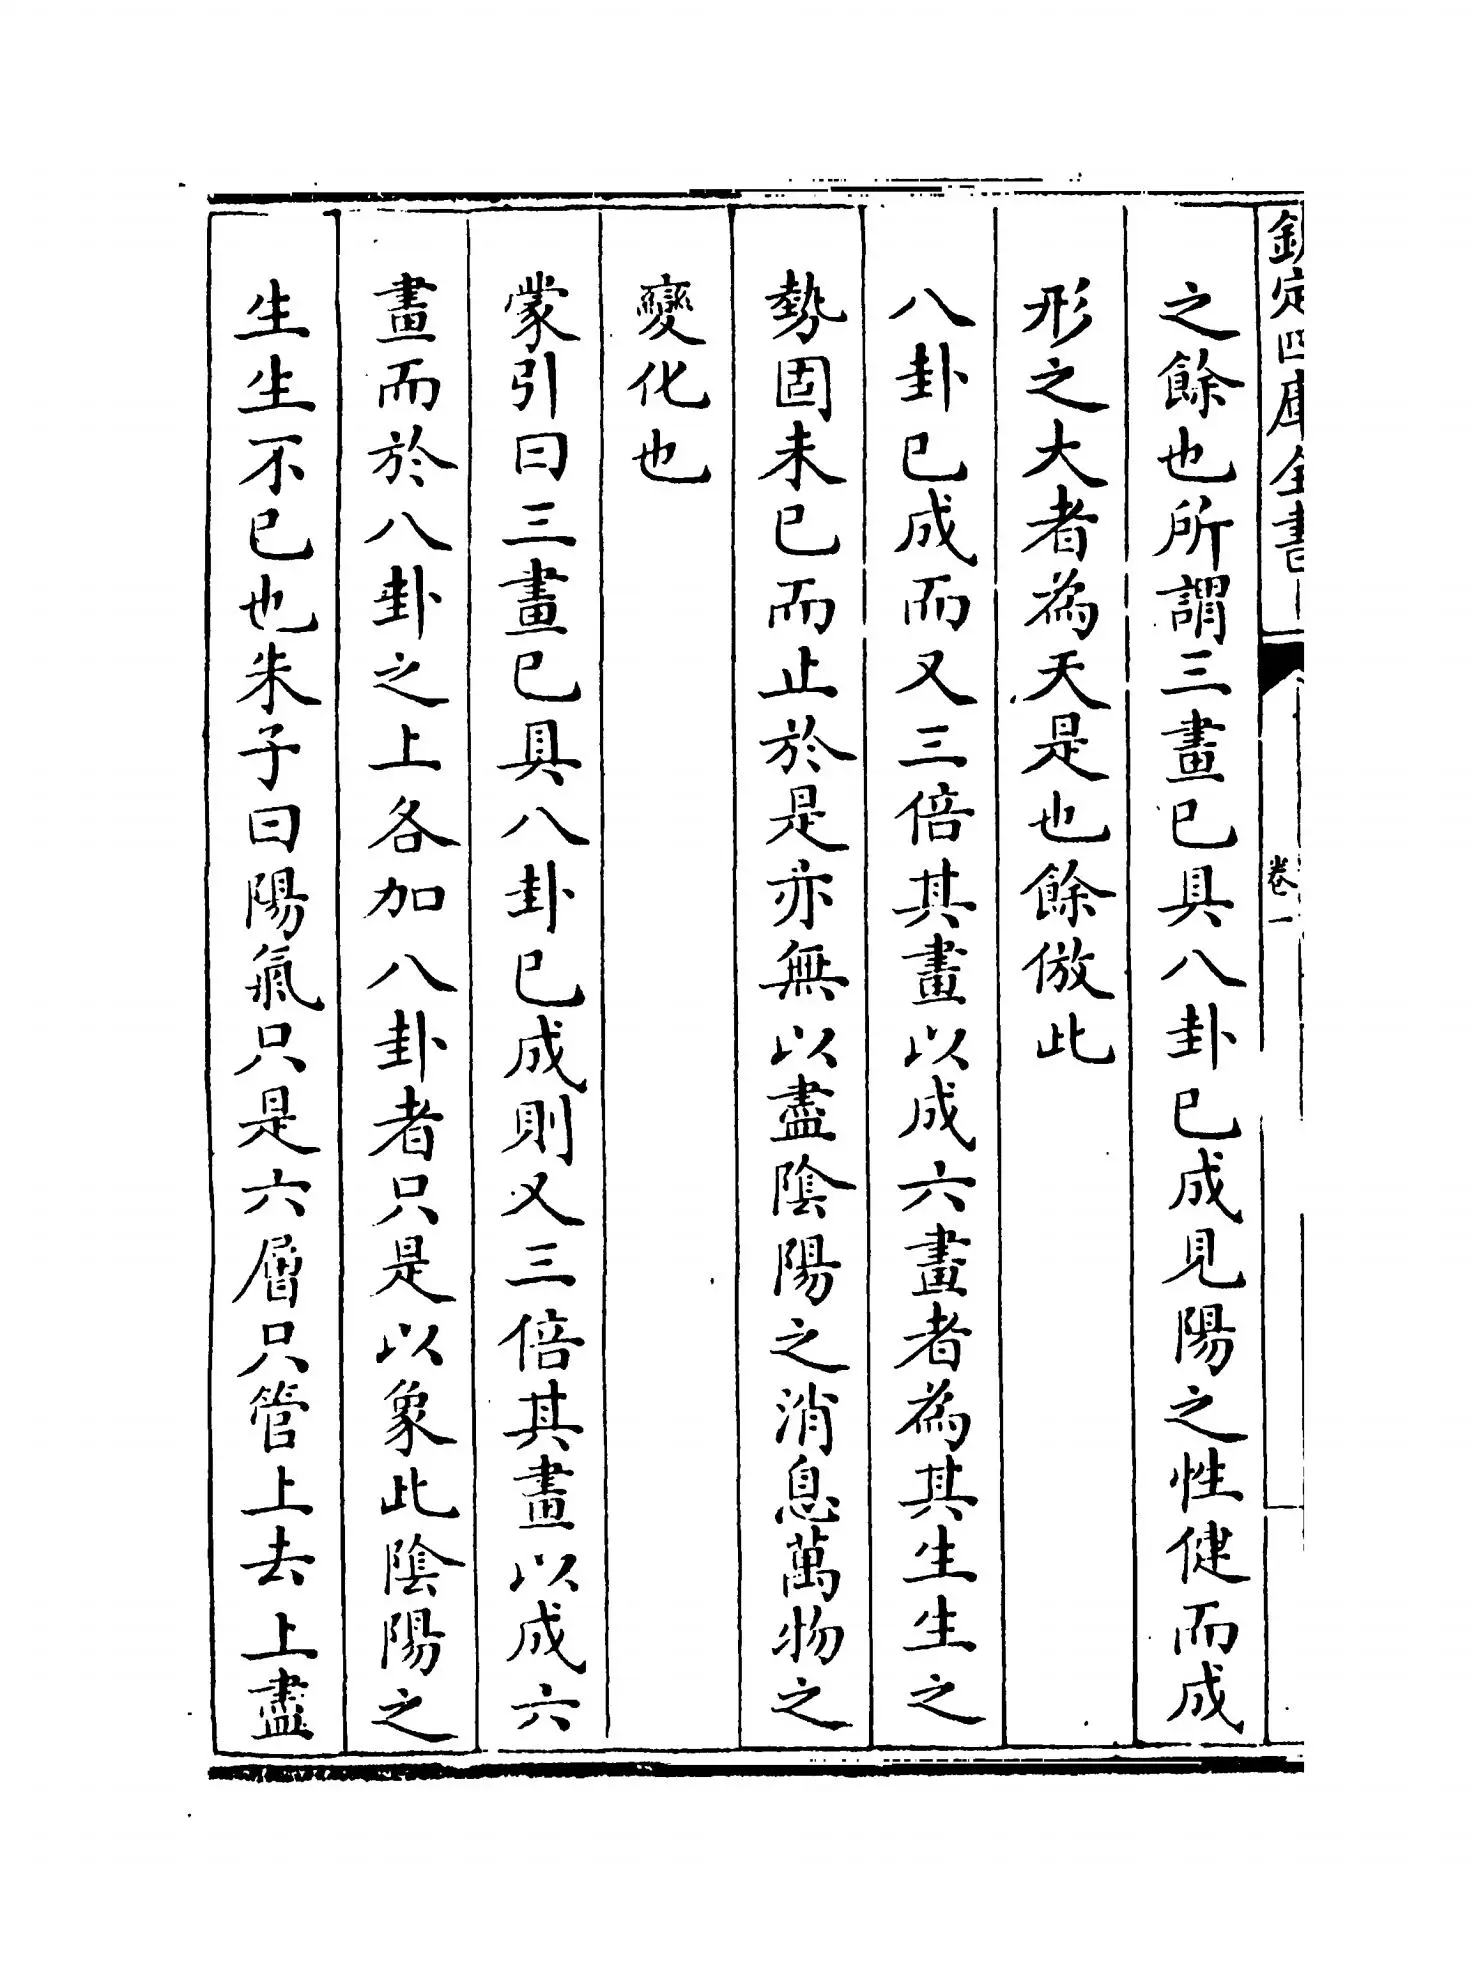 欽定四庫全書
卷一
之餘也所謂三畫已具八卦已成見陽之性健而成
形之大者為天是也餘倣此
八卦已成而又三倍其畫以成六畫者為其生生之
勢固未已而止於是亦無以盡陰陽之消息萬物之
變化也
蒙引曰三畫已具八卦已成則又三倍其畫以成六
畫而於八卦之上各加八卦者只是以象此陰陽之
生生不已也朱子曰陽氣只是六層只管上去上盡